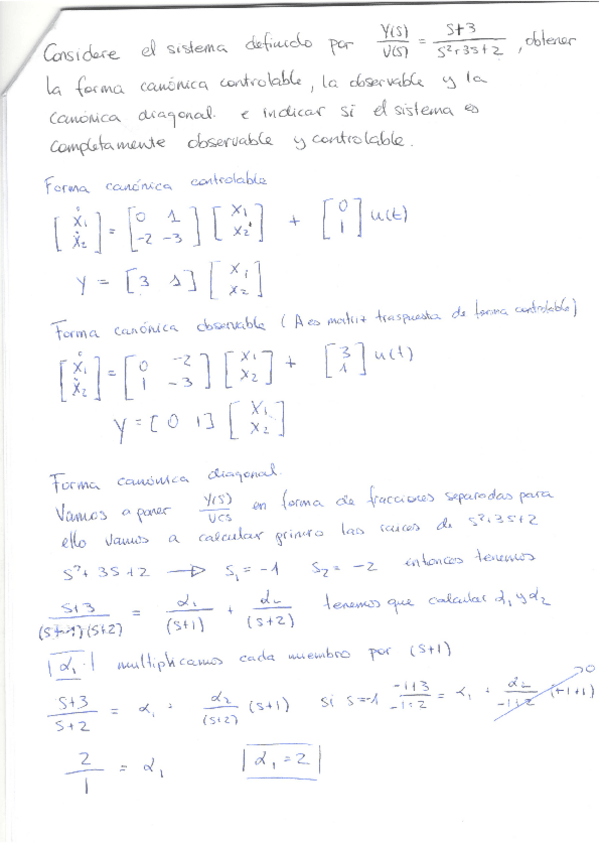 Considere el sistema definido por Y(s)/U(s) = s+3/s²+3s+2, obtener
la forma canónica controlable, la observable y la
canónica diagonal e indicar si el sistema es
completamente observable y controlable.
Forma canónica controlable
[ẋ₁ ẋ₂] = [0 1; -2 -3] [x₁ x₂] + [0 1] u(t)
y = [3 1] [x₁ x₂]
Forma canónica observable (A es matriz traspuesta de forma controlable)
[ẋ₁ ẋ₂] = [0 -2; 1 -3] [x₁ x₂] + [3 1] u(t)
y = [0 1] [x₁ x₂]
Forma canónica diagonal.
Vamos a poner Y(s)/U(s en forma de fracciones separadas para
ello vamos a calcular primero las raices de s²+3s+2
s²+3s+2 → s₁=-1 s₂=-2 entonces tenemos
s+3/(s+1)(s+2) = α₁/(s+1) + α₂/(s+2) tenemos que calcular α₁ y α₂
|α₁| multiplicamos cada miembro por (s+1)
s+3/s+2 = α₁ + α₂/(s+2) (s+1) si s=-1 -1+3/-1+2 = α₁ + α₂/-1+2 (-1+1) →0
2/1 = α₁ |α₁=2|